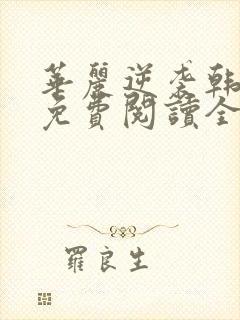 華麗逆袭韩
免費閱讀全
羅良生